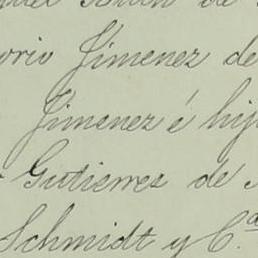 de
orio Jimenez de
Jimenez é hij
Gutierrez de
Schmidt y C.ª